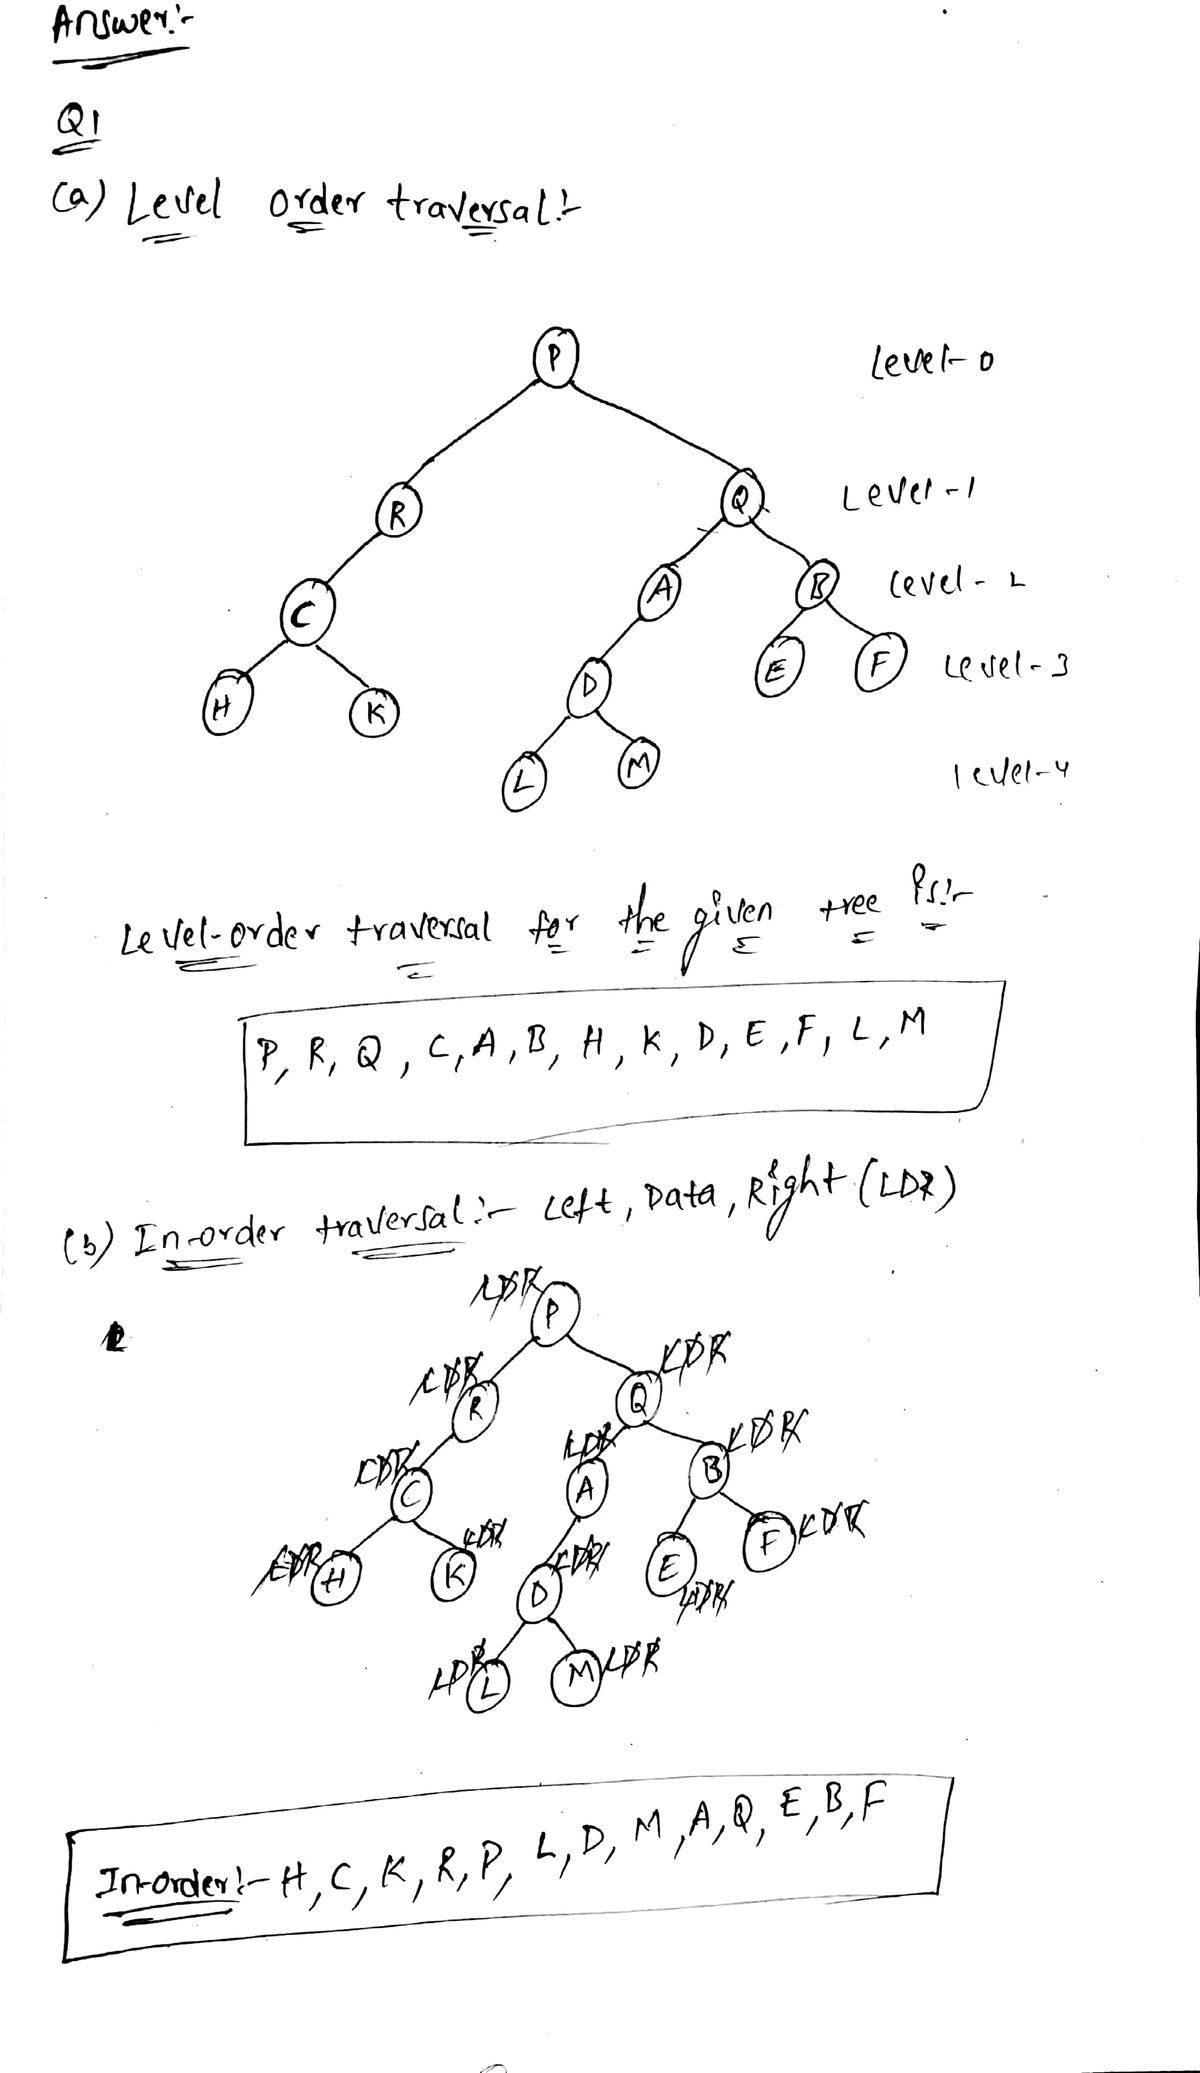 Answer:-
Q1
(a) Level order traversal:-
P
Level-0
R
Q
Level-1
C
A
B
Level-2
H
K
D
E
F
Level-3
L
M
level-4
Level-order traversal for the given tree is:-
P, R, Q, C, A, B, H, K, D, E, F, L, M
(b) In-order traversal:- Left, Data, Right (LDR)
LDR P
LDR R
Q LDR
LDR C
LDR A
B LDR
LDR H
K LDR
D LDR
E LDR
F LDR
LDR L
M LDR
In-order:- H, C, K, R, P, L, D, M, A, Q, E, B, F